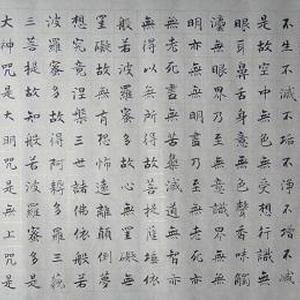 不生不滅不垢不淨不增不減
是故空中無色無受想行識無
眼耳鼻舌身意無色聲香味觸
法無眼界乃至無意識界無無
明亦無無明盡乃至無老死亦
無老死盡無苦集滅道無智亦
無得以無所得故菩提薩埵依
般若波羅蜜多故心無罣礙無
罣礙故無有恐怖遠離顛倒夢
想究竟涅槃三世諸佛依般若
波羅蜜多故得阿耨多羅三藐
三菩提故知般若波羅蜜多是
大神咒是大明咒是無上咒是